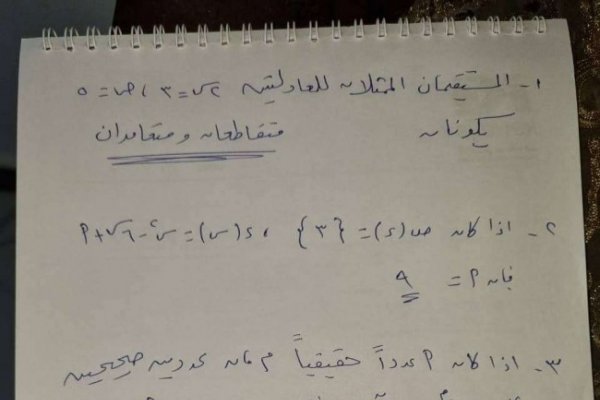 ١- المستقيمان الممثلان للمعادلتين س = ٣ ، ص = ٥
يكونان متقاطعان ومتعامدان
٢- اذا كان ص(د) = {٣} ، د(س) = س² - ٦س + م
فإن م = ٩
٣- اذا كان م عدداً حقيقياً م مان عددين صحيحين